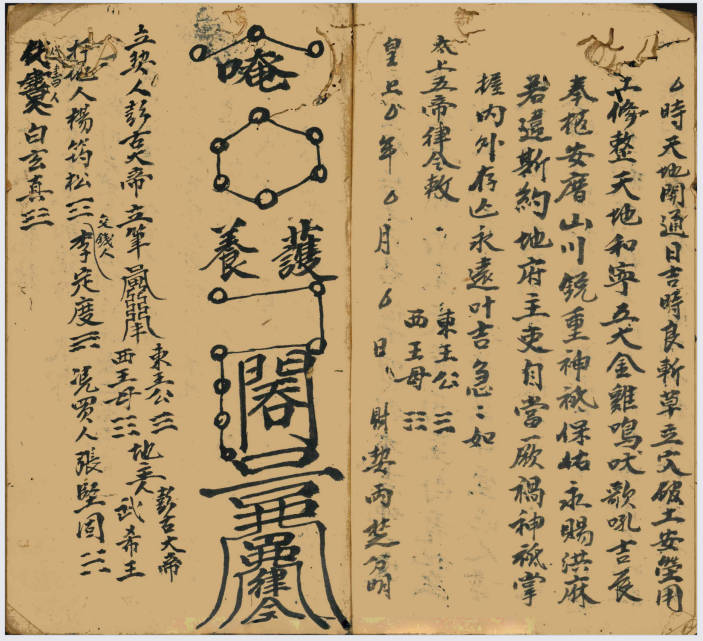 时天地開通日吉時良斬草立穴破土安瑩用
工修整天地和寧玉犬金雞鳴吠歌吼吉辰
奉柩安厝山川銳重神祗保祐永賜洪麻
若違斯約地府主吏自當厥禍神祗掌
握内外存亡永遠叶吉急〻如
太上五帝律令敕
東王公
西王母
皇上 年 月 日 財契兩芝分明
唵
護
養
律令
立契人彭古大帝立筆
東王公
西王母
地主
彭古大帝
武帝王
行地人楊筠松
交錢人
李定度
凭買人張堅固
代書人白玄真